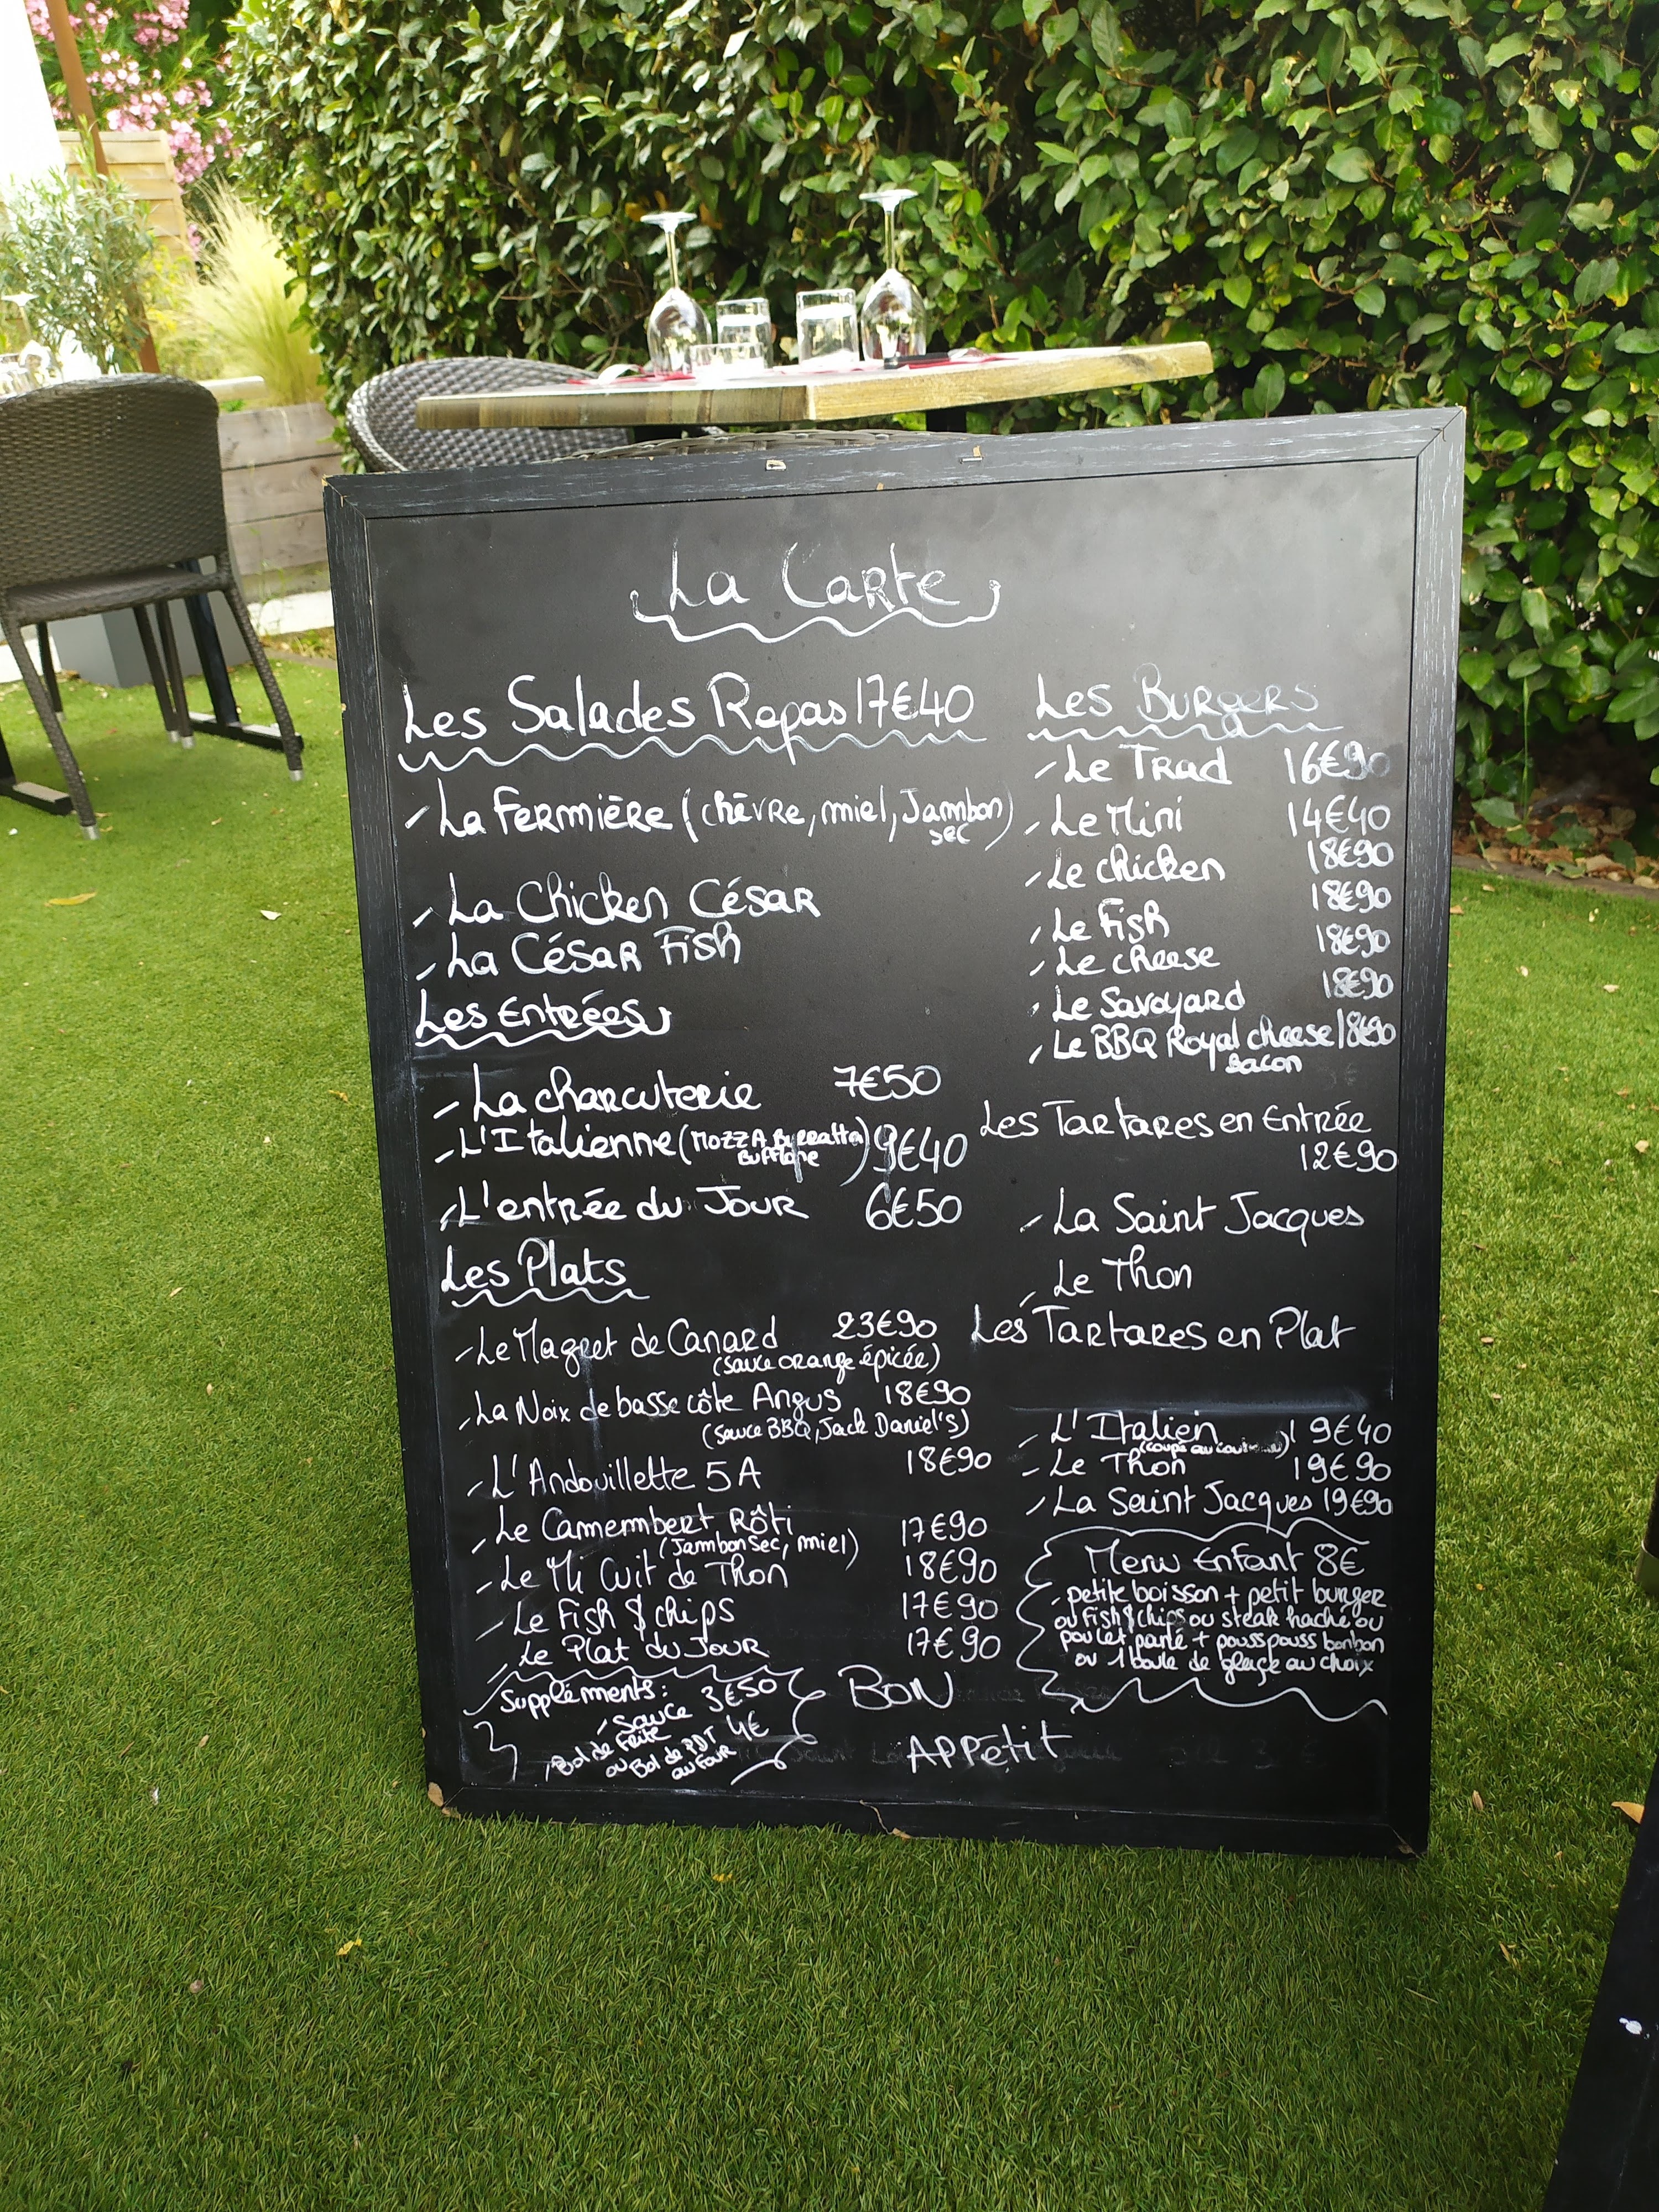 La Carte
Les Salades Repas 17€40
- La Fermière (chèvre, miel, Jambon
sec)
- La Chicken César
- La César Fish
Les Entrées
- La charcuterie 7€50
- L'Italienne (Mozza Burratta
Bufflone) 9€40
- L'entrée du Jour 6€50
Les Plats
- Le Magret de Canard 23€90
(sauce orange épicée)
- La Noix de basse côte Angus 18€90
(Sauce BBQ, Jack Daniel's)
- L'Andouillette 5A 18€90
- Le Camembert Rôti 17€90
(Jambon Sec, miel)
- Le Mi Cuit de Thon 18€90
- Le Fish & chips 17€90
- Le Plat du Jour 17€90
Suppléments:
- Sauce 3€50
- Bol de Frite 4€
ou Bol de PDT
au Four
Les Burgers
- Le Trad 16€90
- Le Mini 14€40
- Le chicken 18€90
- Le Fish 18€90
- Le cheese 18€90
- Le Savoyard 18€90
- Le BBQ Royal cheese 18€90
Bacon
Les Tartares en Entrée
12€90
- La Saint Jacques
- Le Thon
Les Tartares en Plat
- L'Italien 19€40
(coupé au)
- Le Thon 19€90
- La Saint Jacques 19€90
Menu Enfant 8€
- petite boisson + petit burger
ou Fish & chips ou steak haché ou
poulet pané + pouss pouss bonbon
ou 1 boule de glace au choix
BON
APPétit